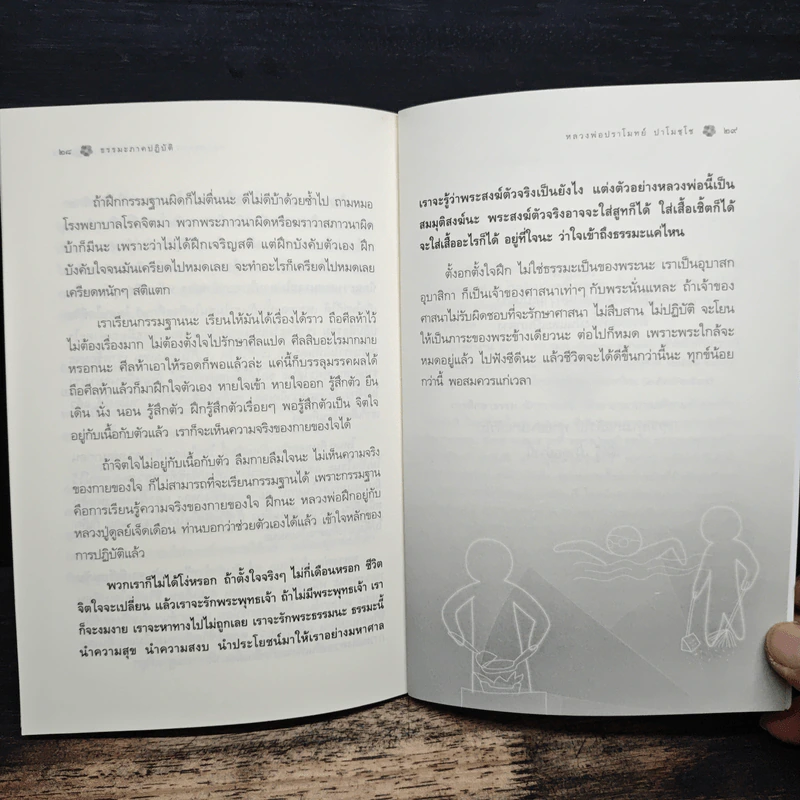 ๒๘ ธรรมะภาคปฏิบัติ
ถ้าฝึกกรรมฐานผิดก็ไม่ตื่นนะ ดีไม่ดีบ้าด้วยซ้ำไป ถามหมอ
โรงพยาบาลโรคจิตมา พวกพระภาวนาผิดหรือฆราวาสภาวนาผิด
บ้าก็มีนะ เพราะว่าไม่ได้ฝึกเจริญสติ แต่ฝึกบังคับตัวเอง ฝึก
บังคับใจจนมันเครียดไปหมดเลย จะทำอะไรก็เครียดไปหมดเลย
เครียดหนักๆ สติแตก
เราเรียนกรรมฐานนะ เรียนให้มันได้เรื่องได้ราว ถือศีลห้าไว้
ไม่ต้องเรื่องมาก ไม่ต้องตั้งใจไปรักษาศีลแปด ศีลสิบอะไรมากมาย
หรอกนะ ศีลห้าเอาให้รอดก็พอแล้วล่ะ แค่นี้ก็บรรลุมรรคผลได้
ถือศีลห้าแล้วก็มาฝึกใจตัวเอง หายใจเข้า หายใจออก รู้สึกตัว ยืน
เดิน นั่ง นอน รู้สึกตัว ฝึกรู้สึกตัวเรื่อยๆ พอรู้สึกตัวเป็น จิตใจ
อยู่กับเนื้อกับตัวแล้ว เราก็จะเห็นความจริงของกายของใจได้
ถ้าจิตใจไม่อยู่กับเนื้อกับตัว ลืมกายลืมใจนะ ไม่เห็นความจริง
ของกายของใจ ก็ไม่สามารถที่จะเรียนกรรมฐานได้ เพราะกรรมฐาน
คือการเรียนรู้ความจริงของกายของใจ ฝึกนะ หลวงพ่อฝึกอยู่กับ
หลวงปู่ดูลย์เจ็ดเดือน ท่านบอกว่าช่วยตัวเองได้แล้ว เข้าใจหลักของ
การปฏิบัติแล้ว
พวกเราก็ไม่ได้โง่หรอก ถ้าตั้งใจจริงๆ ไม่กี่เดือนหรอก ชีวิต
จิตใจจะเปลี่ยน แล้วเราจะรักพระพุทธเจ้า ถ้าไม่มีพระพุทธเจ้า เรา
ก็จะงมงาย เราจะหาทางไปไม่ถูกเลย เราจะรักพระธรรมนะ ธรรมะนี้
นำความสุข นำความสงบ นำประโยชน์มาให้เราอย่างมหาศาล
หลวงพ่อปราโมทย์ ปาโมชฺโช ๒๙
เราจะรู้ว่าพระสงฆ์ตัวจริงเป็นยังไง แต่งตัวอย่างหลวงพ่อนี้เป็น
สมมุติสงฆ์นะ พระสงฆ์ตัวจริงอาจจะใส่สูทก็ได้ ใส่เสื้อเชิ้ตก็ได้
จะใส่เสื้ออะไรก็ได้ อยู่ที่ใจนะ ว่าใจเข้าถึงธรรมะแค่ไหน
ตั้งอกตั้งใจฝึก ไม่ใช่ธรรมะเป็นของพระนะ เราเป็นอุบาสก
อุบาสิกา ก็เป็นเจ้าของศาสนาเท่าๆ กับพระนั่นแหละ ถ้าเจ้าของ
ศาสนาไม่รับผิดชอบที่จะรักษาศาสนา ไม่สืบสาน ไม่ปฏิบัติ จะโยน
ให้เป็นภาระของพระข้างเดียวนะ ต่อไปก็หมด เพราะพระใกล้จะ
หมดอยู่แล้ว ไปฟังซีดีนะ แล้วชีวิตจะได้ดีขึ้นกว่านี้นะ ทุกข์น้อย
กว่านี้ พอสมควรแก่เวลา